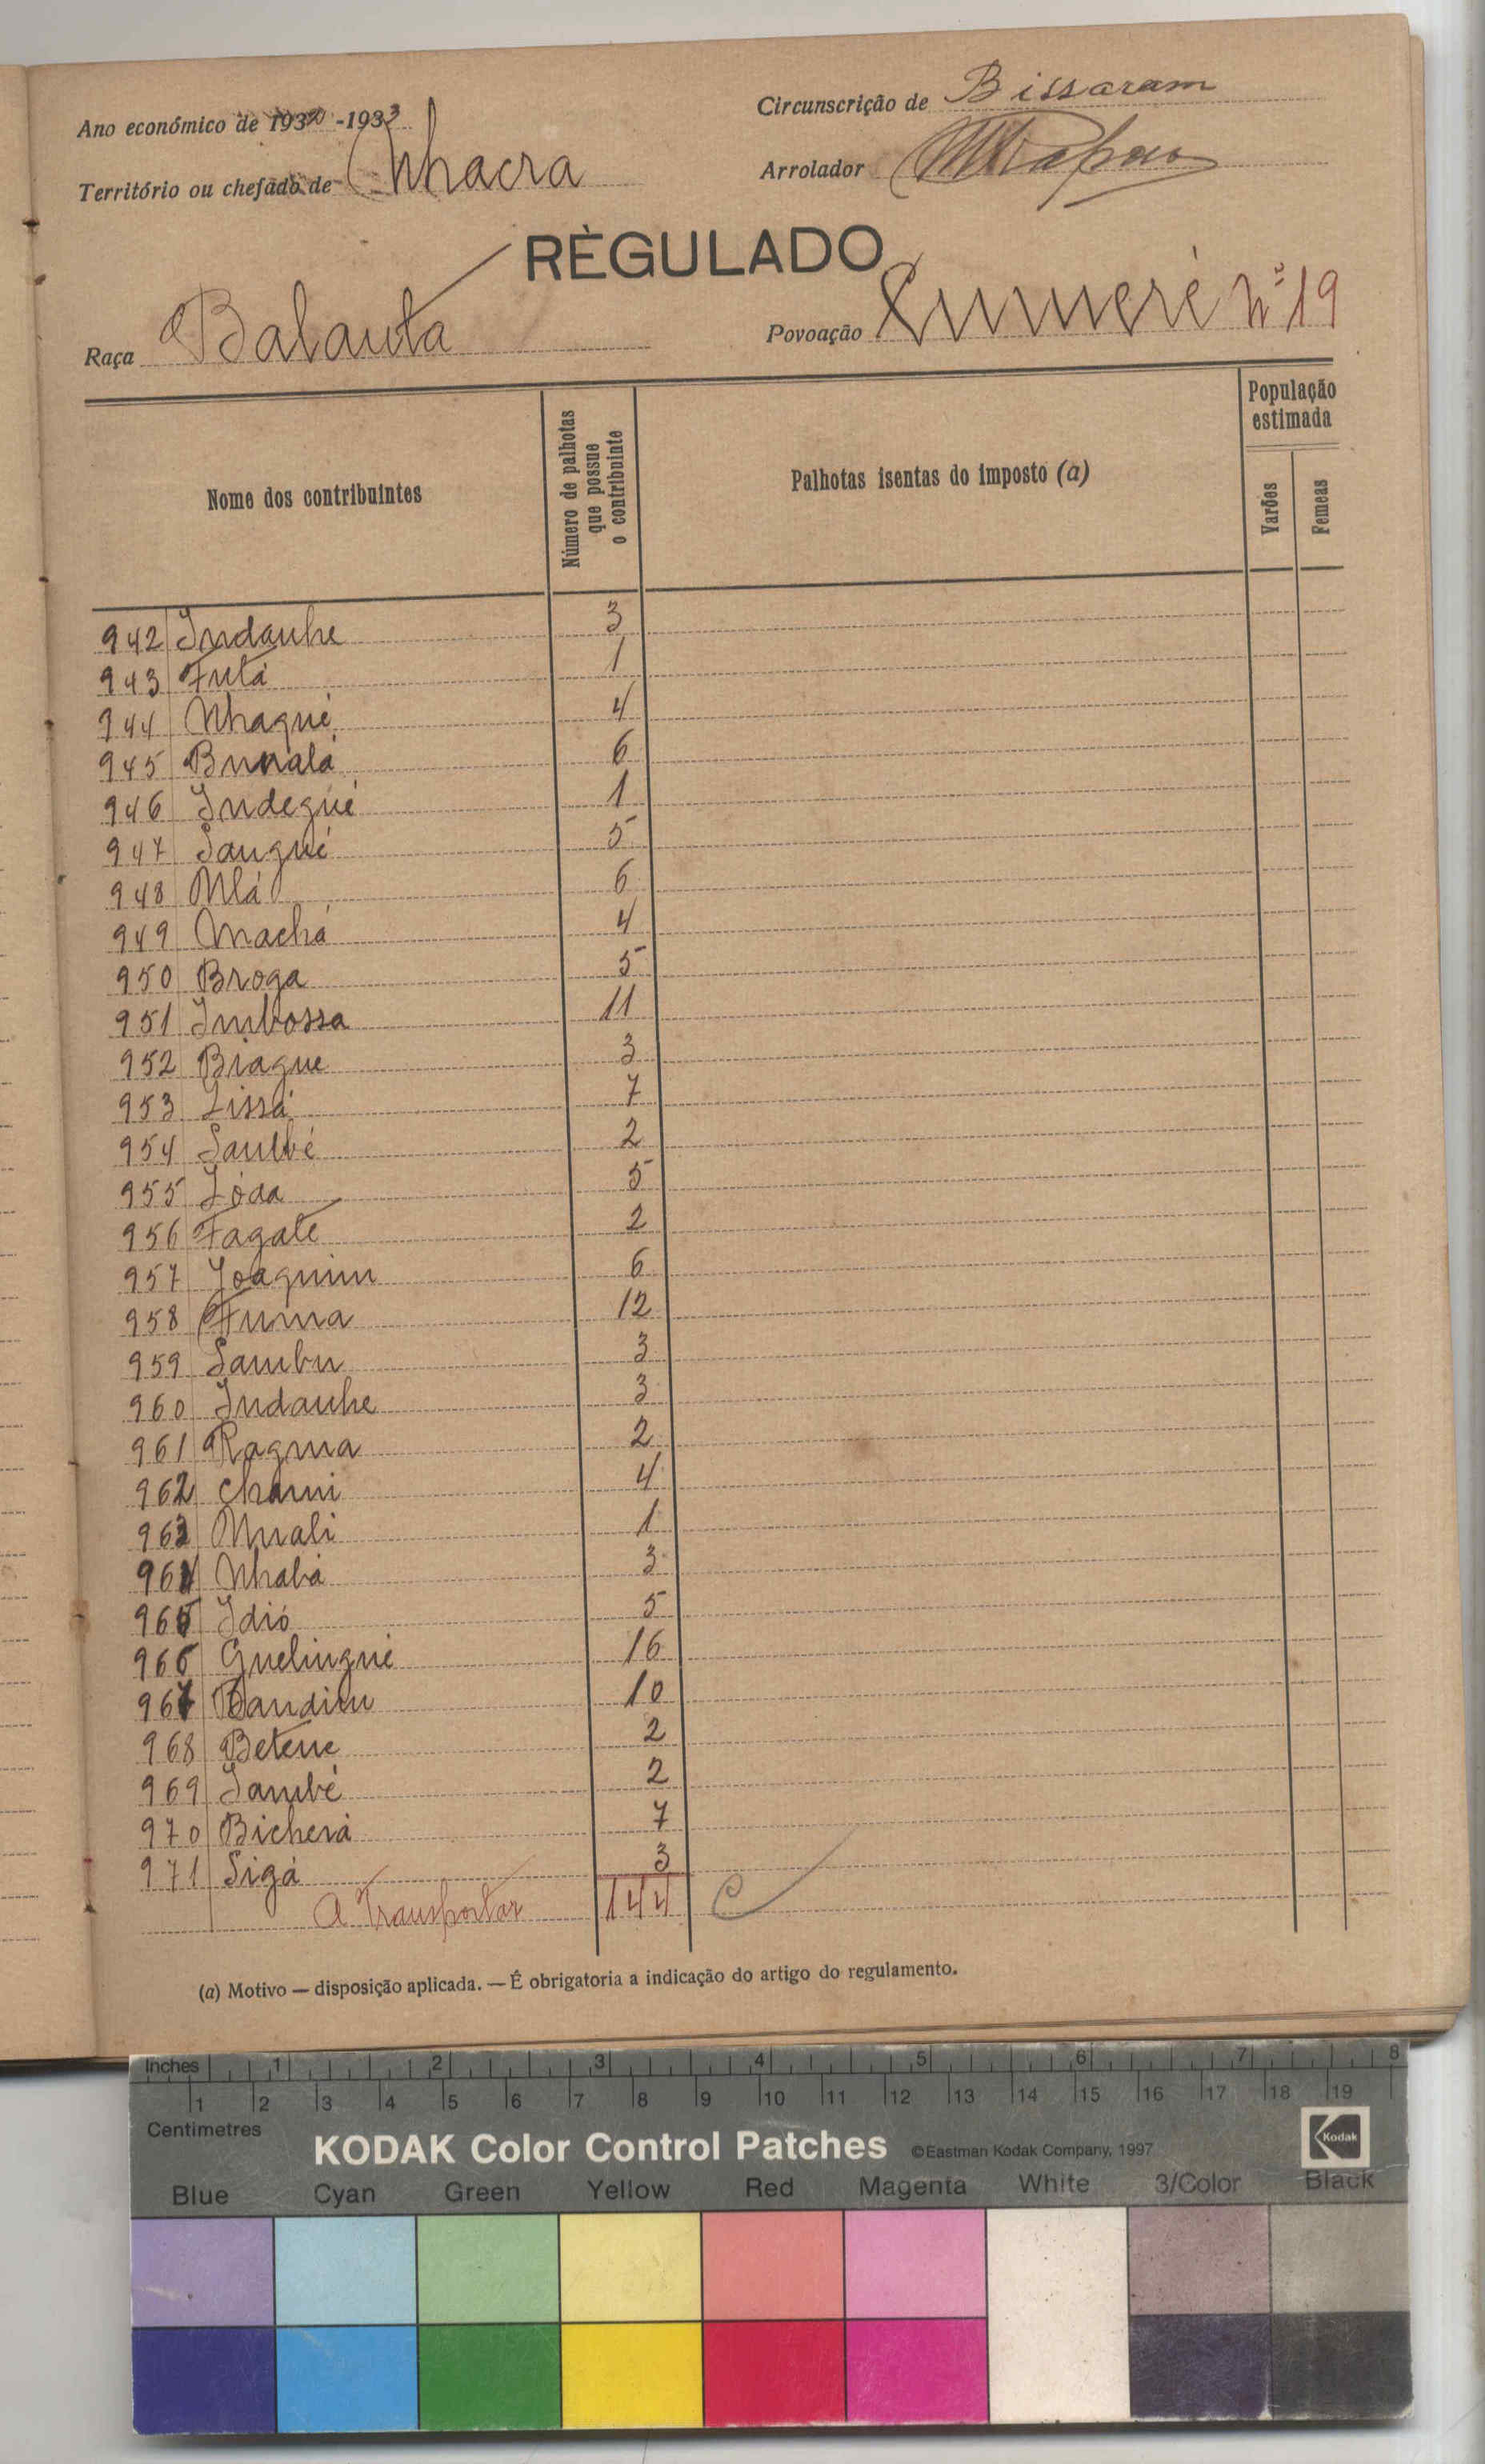 Ano económico de 1930-1933
Circunscrição de Bissaram
Território ou chefado de Nhacra
Arrolador
REGULADO
Raça Balanta
Povoação Cumeré Nº 19
Nome dos contribuintes
Número de palhotas que possue o contribuinte
Palhotas isentas do imposto (a)
População estimada
Varões
Femeas
942 Indanhe 3
943 Futá 1
944 Nhaqué 4
945 Bunalá 6
946 Indegué 1
947 Sangué 5
948 Mlá 6
949 Machá 4
950 Broga 5
951 Imbossa 11
952 Biague 3
953 Lissá 7
954 Sambé 2
955 Lóda 5
956 Fagate 2
957 Joaquim 6
958 Fuma 12
959 Sambu 3
960 Indanhe 3
961 Ragma 2
962 Chami 4
963 Muali 1
964 Nhabá 3
965 Idió 5
966 Guelingué 16
967 Bandim 10
968 Betene 2
969 Sambé 2
970 Bicherá 7
971 Sigá 3
A Transportar 144
(a) Motivo — disposição aplicada. — É obrigatoria a indicação do artigo do regulamento.
Inches 1 2 3 4 5 6 7 8
1 2 3 4 5 6 7 8 9 10 11 12 13 14 15 16 17 18 19
Centimetres
KODAK Color Control Patches ©Eastman Kodak Company, 1997 Kodak
Blue Cyan Green Yellow Red Magenta White 3/Color Black